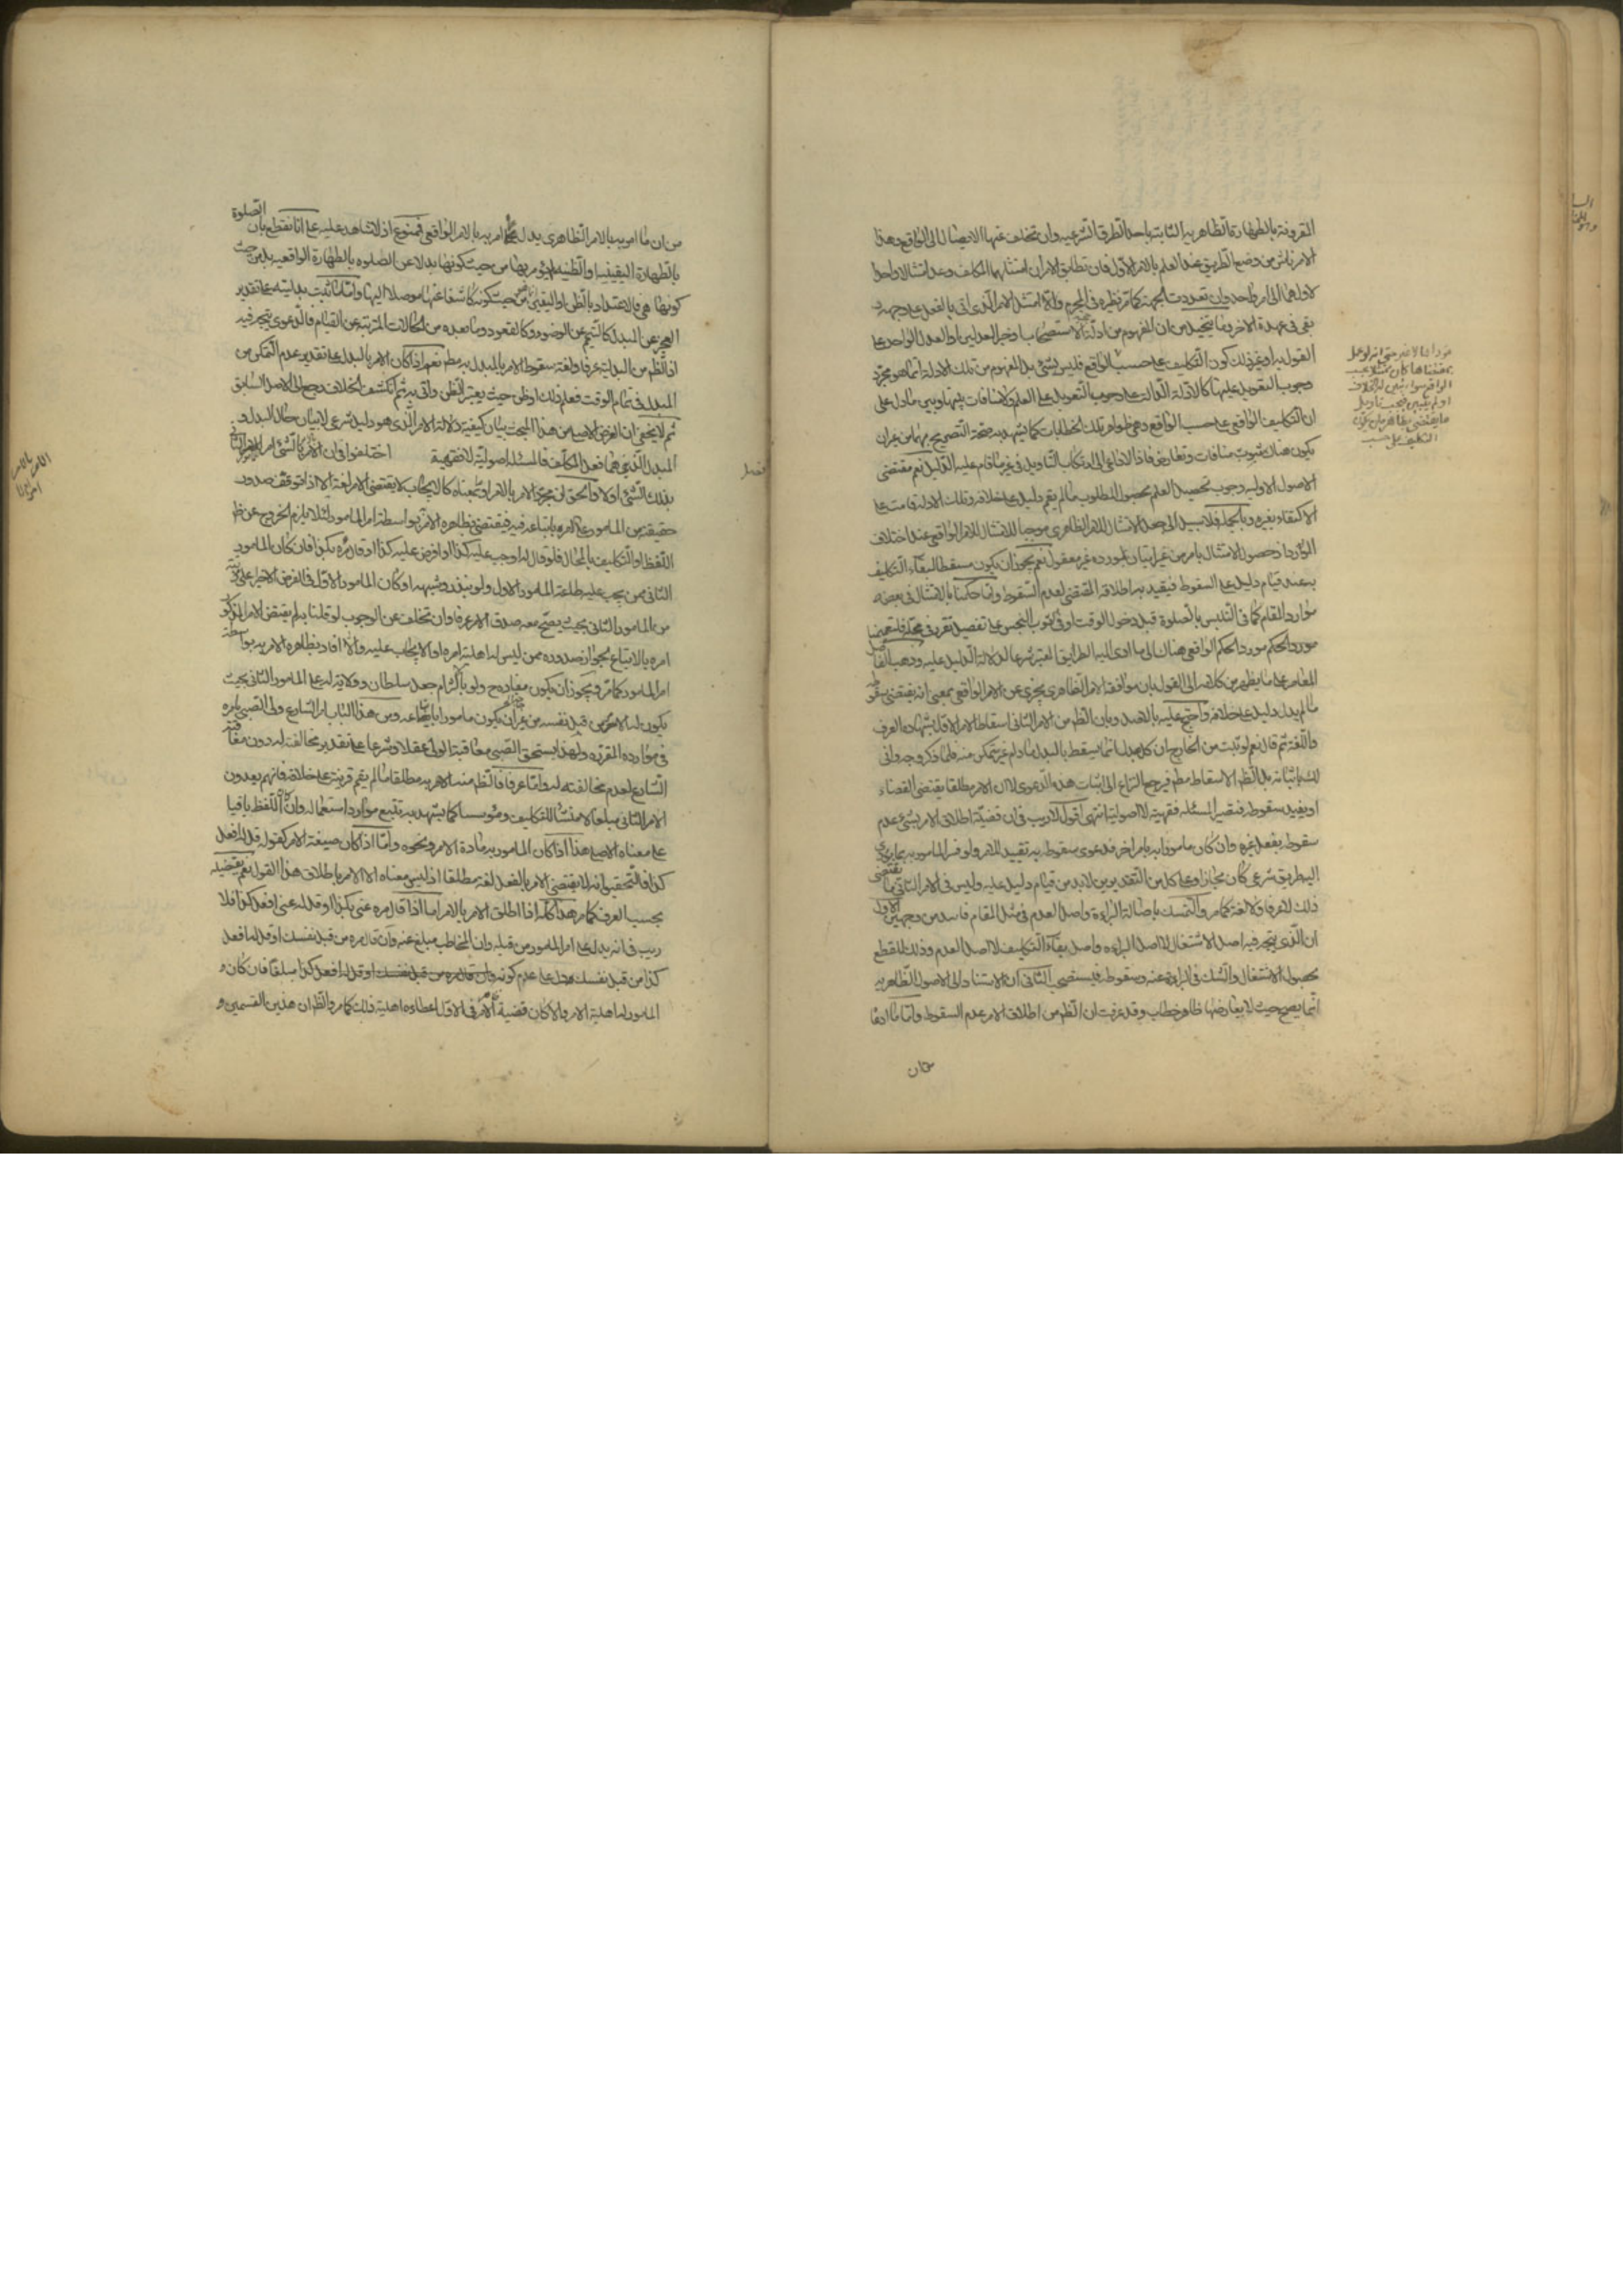 المقرونة بالطهارة الظاهرية الثابتة باحد الطرق الشرعيه وان تخلف عنها الايصال الى الواقع وهذا
الامر ناش من وضع الطريق عند العلم بالامر الاول فان تطابق الامران امتثلهما المكلف وعد امتثالا واحدا
بقى فى عهدة الاخر وما يتخيل من ان المفهوم من ادلة الاستصحاب وخبر العدلين او العدل الواحد على
القول به او غير ذلك كون التكليف على حسب الواقع فليس بشئ بل المفهوم من تلك الادلة انما هو مجرد
وجوب التعويل عليها كالادلة الدالة على وجوب التعويل على العلم ولا منافات بينها وبين ما دل على
ان التكليف الواقعى على حسب الواقع وهى ظواهر تلك الخطابات كما يشهد به صحة التصريح بهما من غير ان
يكون هناك شوب منافات وتعارض فاذا لا داعى الى ارتكاب التاويل فى غير ما قام عليه الدليل نعم مقتضى
الاصول الاوليه وجوب تحصيل العلم بحصول المطلوب ما لم يقم دليل على خلافه وتلك الادلة قامت على
الاكتفاء بغيره وبالجملة فلا سبيل الى جعل الامتثال للامر الظاهرى موجبا للامتثال للامر الواقعى عند اختلاف
الموارد اذ حصول الامتثال بامر من غير اتيان بمورده غير معقول نعم يجوز ان يكون مسقطا لبقاء التكليف
به عند قيام دليل على السقوط فيقيد به اطلاقه المقتضى لعدم السقوط وانما حكمنا بالامتثال فى بعض
موارد المقام كما فى التلبس بالصلوة قبل دخول الوقت او فى الثوب النجس على تفصيل تقرر فى محله
مورد الحكم مورد الحكم الواقعى هناك الى ما ادى اليه الطرايق المعتبرة شرعا لدلالة الدليل عليه وذهب الفاضل
المعاصر على ما يظهر من كلامه الى القول بان موافقة الامر الظاهرى يجزى عن الامر الواقعى بمعنى انه يقتضى سقوطه
ما لم يدل دليل على خلافه واحتج عليه بالاصل وبان الظ من الامر الثانى اسقاط الامر الاول بشهادة العرف
واللغة ثم قال نعم لو ثبت من الخارج ان كل مبدل انما يسقط بالبدل ما دام غير متمكن منه فلما ذكر وجه وانى
لك باثباته بل الظ الاسقاط مط فيرجع النزاع الى اثبات هذه الدعوى لا ان الامر مطلقا يقتضى القضاء
او يفيد سقوطه فتصير المسئله فقهية لا اصولية انتهى اقول لا ريب فى ان قضية اطلاق الامر بشئ عدم
سقوطه بفعل غيره وان كان مامورا به بامر اخر فدعوى سقوطه به تقييد للامر ولو فسر المامور به بما يؤدى
اليه طريق شرعى كان مجازا وعلى كل من التقديرين لابد من قيام دليل عليه وليس فى الامر الثانى ما يقتضى
ذلك لا عرفا ولا لغة كما مر والتمسك باصالة البراءة واصل العدم فى مثل المقام فاسد من وجهين الاول
ان الذى يتجه فيه اصل الاشتغال لا اصل البراءه واصل بقاء التكليف لا اصل العدم وذلك للقطع
بحصول الاشتغال والشك فى البراءة عنه وسقوطه فيستصحب الثانى ان الاستناد الى الاصول الظاهريه
انما يصح حيث لا يعارضها ظاهر خطاب وقد عرفت ان الظ من اطلاق الامر عدم السقوط واما ما ادعاه
من ان ما امر به بالامر الظاهرى بدل عما امر به بالامر الواقعى فممنوع اذ لا شاهد عليه على انا نقطع بان الصلوة
بالطهارة اليقينية والظنية لم يؤمر بهما من حيث كونها بدلا عن الصلوه بالطهارة الواقعيه بل من حيث
كونها هى فالاعتداد بالظن او اليقين من حيث كونه كاشفا عنها موصلا اليها وانما ثبت بدليته على تقدير
العجز عن المبدل كالتيمم عن الوضوء وكالقعود وما بعده من الحالات المترتبة عن القيام فالدعوى يتجه فيه
اذ الظ من البدلية عرفا ولغة سقوط الامر بالمبدل به مط نعم اذا كان الامر بالبدل على تقدير عدم التمكن من
المبدل فى تمام الوقت فعلم ذلك او ظن حيث يعتبر الظن واتى به ثم انكشف الخلاف رجع الى الاصل السابق
ثم لا يخفى ان الغرض الاصلى من هذا المبحث بيان كيفية دلالة الامر الذى هو دليل شرعى لا بيان حال البدل و
المبدل الذين هما فعل المكلف فالمسئلة اصولية لا فقهية اختلفوا فى ان الامر بالامر بالشئ امر
بذلك الشئ او لا والحق ان مجرد الامر بالامر او ما بمعناه كالايجاب لا يقتضى الامر لغة الا اذا توقف صدور
حقيقته من المامور على امره باتباعه فيه فيقتضى بظاهره الامر به بواسطة امر المامور لئلا يلزم الخروج عن ظ
اللفظ او التكليف بالمحال فلو قال له اوجب عليه كذا او افرض عليه كذا او قال مره بكذا فان كان المامور
الثانى ممن يجب عليه طاعة المامور الاول ولو بنذر وشبهه او كان المامور الاول فى الفرض الاخير اعلى رتبة
من المامور الثانى بحيث يصح معه صدق الامر عرفا وان تخلف عن الوجوب لو قلنا به لم يقتض الامر المذكور
امره بالاتباع لجواز صدوره ممن ليس له اهلية امره او الايجاب عليه والا افاد بظاهره الامر به بواسطة
امر المامور كما مر ويجوز ان يكون مفاده ح ولو بالالتزام جعل سلطان وولاية له على المامور الثانى بحيث
يكون له الامر من قبل نفسه من غير ان يكون مامورا باتباعه ومن هذا الباب امر الشارع ولى الصبى بامره
فى موارده المقررة ولهذا يستحق الصبى معاقبة الولى عقلا وشرعا على تقدير مخالفته له دون معاقبة
الشارع لعدم مخالفته له واما عرفا فالظ منه الامر به مطلقا ما لم يقم قرينة على خلافه فانهم يعدون
الامر الثانى مبلغا لا منشئا للتكليف ومؤسسا كما يشهد به تتبع موارد استعماله وان كان اللفظ باقيا
على معناه الاصلى هذا اذا كان المامور به مادة الامر ونحوه واما اذا كان صيغة الامر كقوله قل له افعل
كذا فالتحقيق انه لا يقتضى الامر بالفعل لغة مطلقا اذ ليس معناه الا الامر باطلاق هذا القول نعم يقتضيه
بحسب العرف كما مر هذا كله اذا اطلق الامر بالامر اما اذا قال مره عنى بكذا او قل له عنى افعل كذا فلا
ريب فى انه يدل على امر المامور من قبله وان المخاطب مبلغ عنه وان قال مره من قبل نفسك او قل له افعل
كذا من قبل نفسك فدل على عدم كونه مبلغا فان كان و
المامور له اهلية الامر والا كان قضية الامر فى الاول اعطاءه اهلية ذلك كما مر والظ ان هذين القسمين و